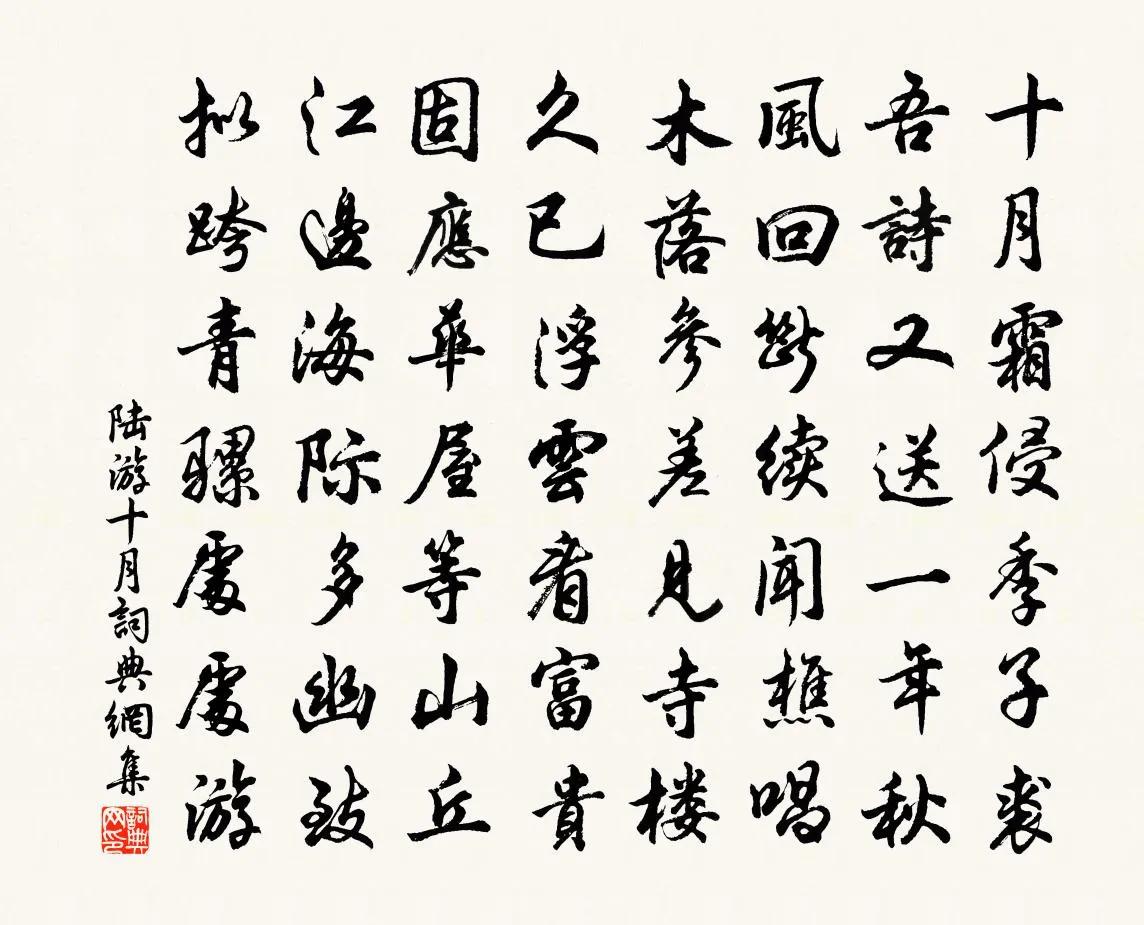 十月霜侵季子裘
吾詩又送一年秋
風回斷续聞樵唱
木落參差見寺楼
久已浮雲看富貴
固應華屋等山丘
江邊海际多幽致
拟跨青骡處處游
陆游十月詞典網集
詞典网印